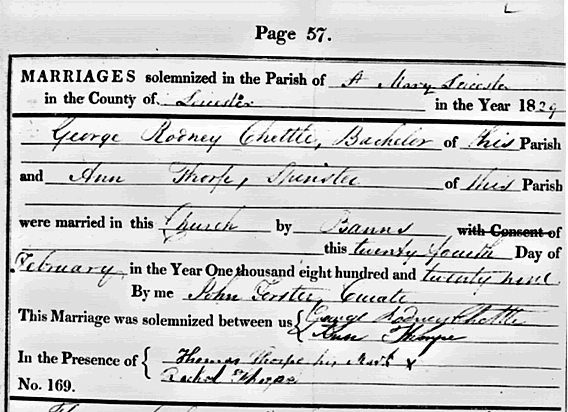 Page 57.
MARRIAGES solemnized in the Parish of St Mary Leicester
in the County of Leicester in the Year 1829
George Rodney Chettle, Bachelor of this Parish
and Ann Thorpe, Spinster of this Parish
were married in this Church by Banns with Consent of
this twenty fourth Day of
February in the Year One thousand eight hundred and twenty nine
By me John Forster, Curate
This Marriage was solemnized between us { George Rodney Chettle
Ann Thorpe
In the Presence of { Thomas Thorpe his Mark x
Rachel Thorpe
No. 169.